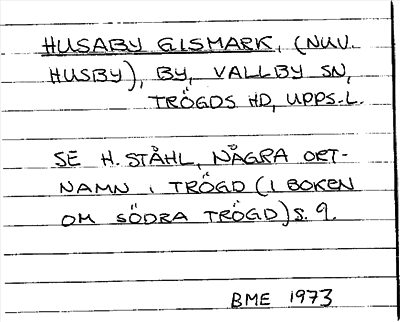 HUSABY GISMARK, (NUV.
HUSBY), BY, VALLBY SN,
TRÖGDS HD, UPPS. L.
SE H. STÅHL, NÅGRA ORT-
NAMN I TRÖGD (I BOKEN
OM SÖDRA TRÖGD) S. 9.
BME 1973